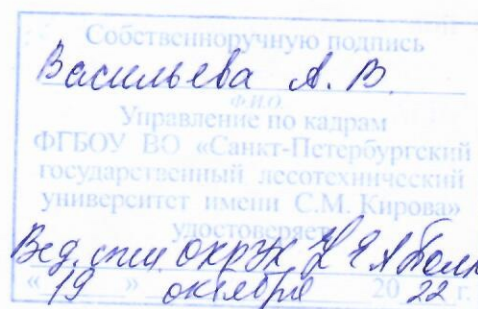 Собственноручную подпись
Васильева А. В.
Ф.И.О.
Управление по кадрам
ФГБОУ ВО «Санкт-Петербургский
государственный лесотехнический
университет имени С.М. Кирова»
удостоверяет
Вед. спец
«19» октября 2022 г.